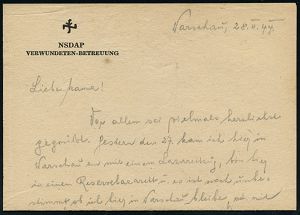 NSDAP
VERWUNDETEN-BETREUUNG
Warschau, 28. 44.
Liebe Mama!
Vor allem sei vielmals herzlichst
gegrüßt. Gestern den 27. kam ich hier in
Warschau an mit einem Lazarettzug, bin hier
in einem Reservelazarett u. es ist noch unbe-
stimmt ob ich hier in Warschau bleibe,